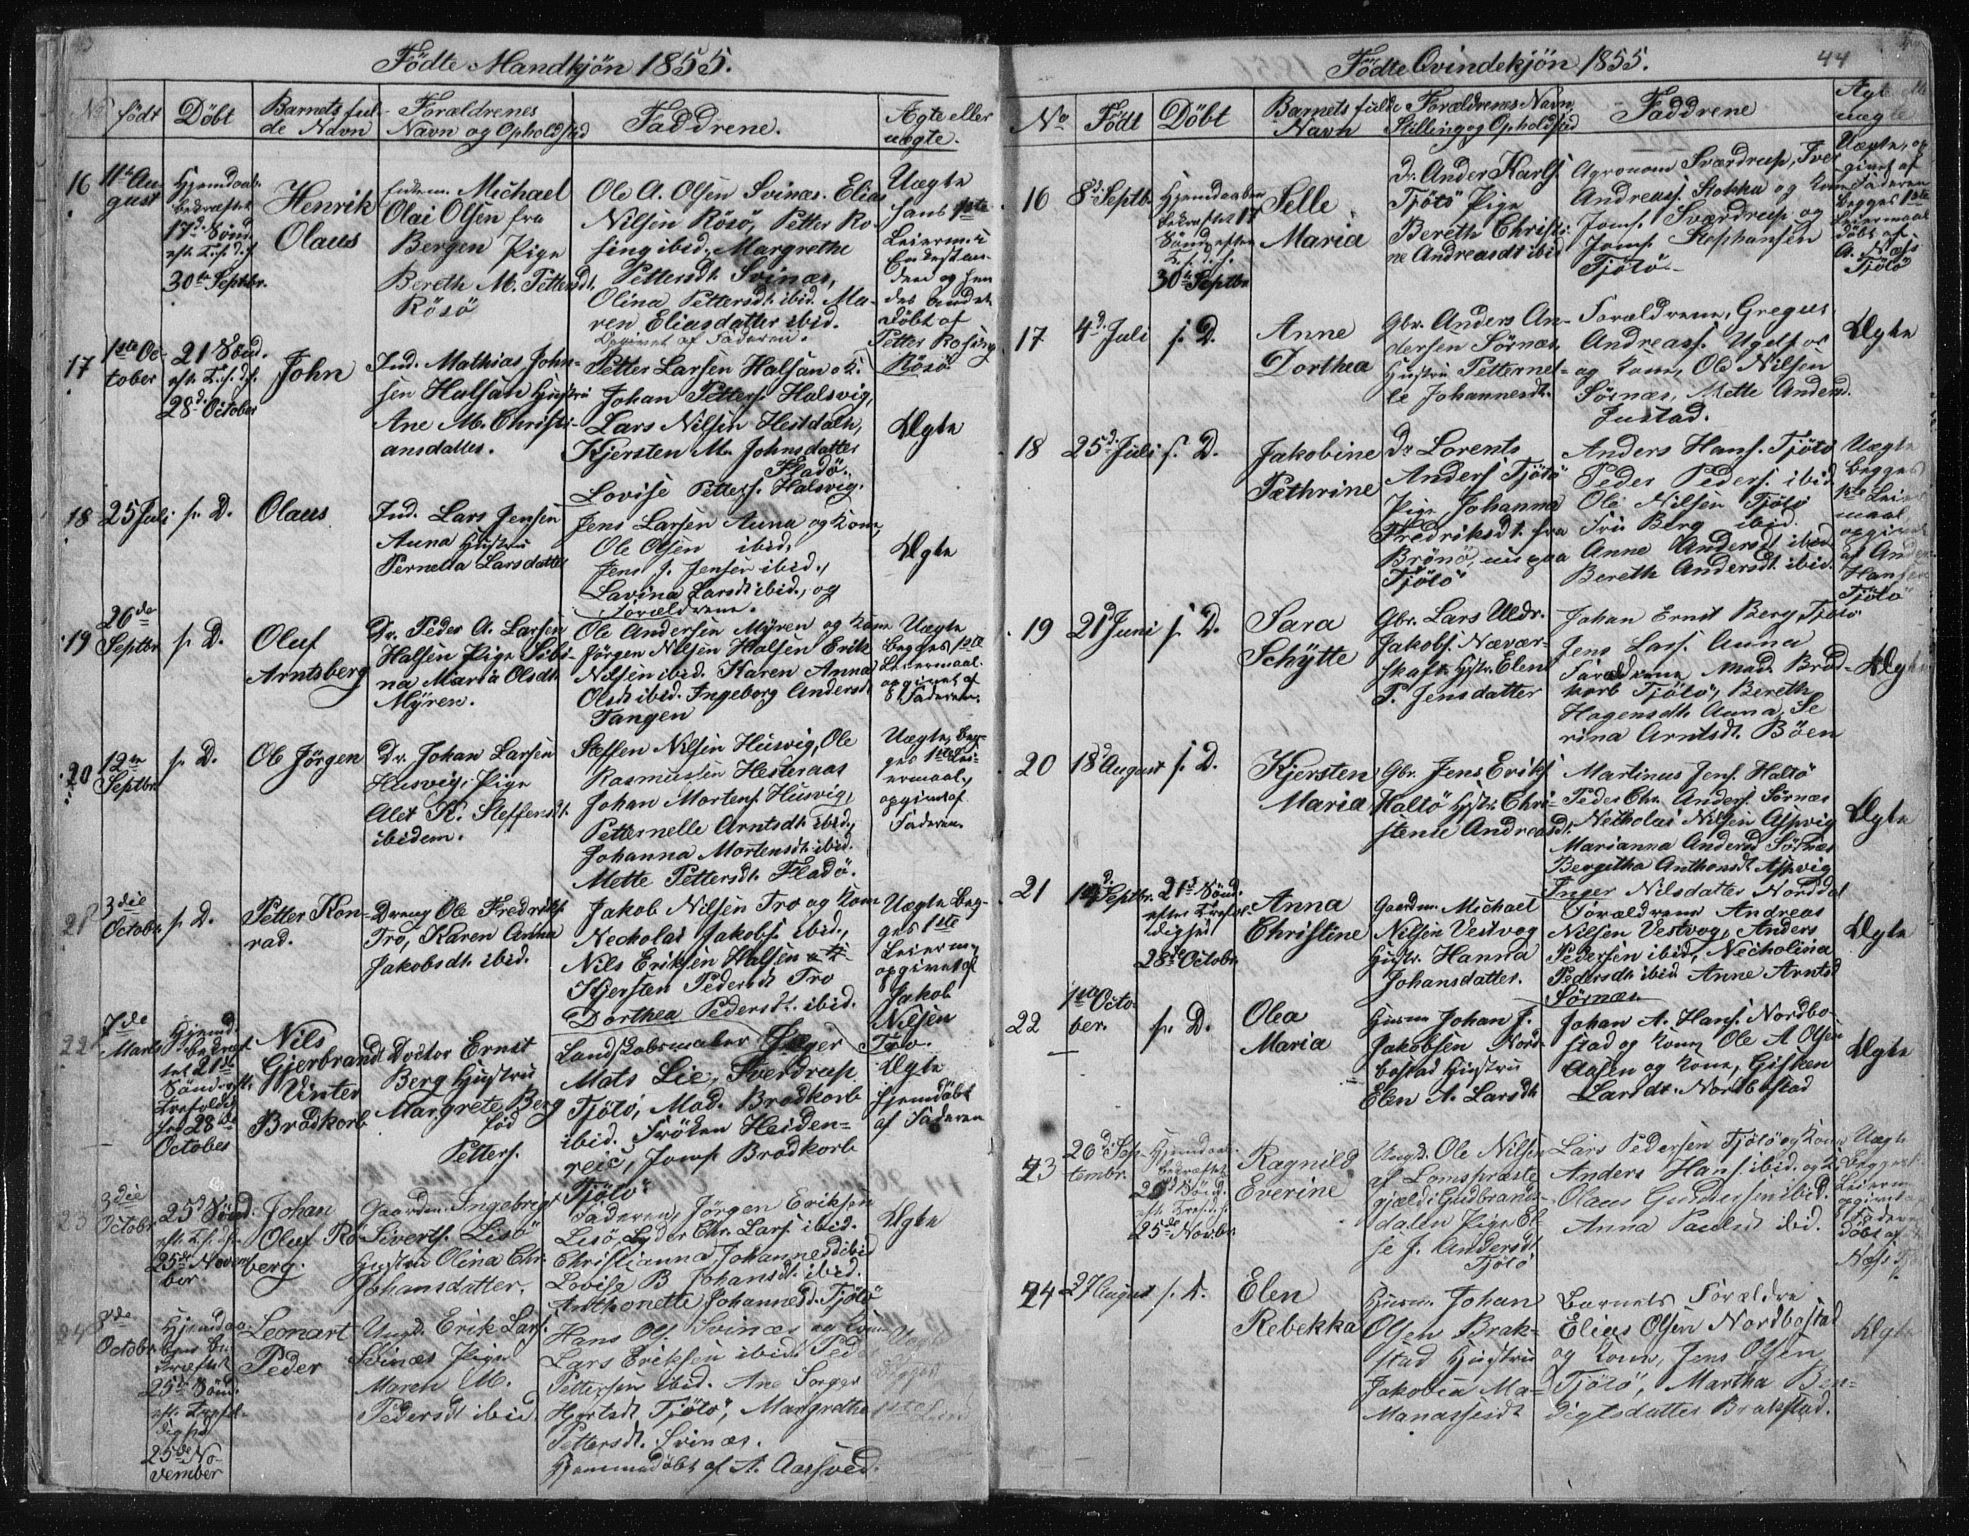 Fødte Mandkjön 1855.
No
født
Döbt
Barnets ful-
de Navn
Forældrenes
Navn og Opholdsted
Faddrene.
Ægte eller
uægte.
16
11te Au-
gust
Hjemdaab
bedræftet
17d. Sönd.
eft. T. f. d. f.
30te Septbr.
Henrik
Olaus
Michael
Olai Olsen fra
Bergen Pige
Bereth M. Pettersdt.
Rösö
Ole A. Olsen Svinæs. Elias
Nilsen Rösö, Petter Ro-
sing ibid. Margrethe
Pettersdt. Svinæs,
Olina Pettersdt. ibid. Ma-
ren Eliasdatter ibid.
Opgivet af Faderen.
Uægte
hans 1ste
Leierm. i
Enkestan-
den og hen
des andet
Döbt af
Petter Rosing
Rösö
17
1ste Oc-
tober
21 Sönd.
eft. T. f. d. f.
28d. October
John
Ind. Mathias John-
sen Halsan Hustru
Ane M. Christi-
ansdatter.
Petter Larsen Halsan o K.
Johan Petters. Halsvig,
Lars Nilsen Hestdalh,
Kjersten M. Johnsdatter
Fladö.
Lovise Petters. Halsvig.
Ægte
18
25 Juli
s. D.
Olaus
Ind. Lars Jensen
Auna Hustru
Pernella Larsdatter
Jens Larsen Auna og Kone,
Ole Olsen ibid.
Jens J. Jensen ibid.,
Lavina Larsdt ibid., og
Forældrene.
Ægte
19
26de
Septbr
s. D.
Oluf
Arntsberg
Dr. Peder A. Larsen
Halsen Pige Sibi-
na Maria Olsdt.
Mÿren.
Ole Andersen Mÿren og Kone
Jörgen Nilsen Halsen Erik
Nilsen ibid. Karen Anna
Olsdt ibid. Ingeborg Andersdt
Tangen
Uægte
Begges 1ste
Leiermaal.
opgivet af
Faderen.
20
12te
Septbr.
s. D.
Ole Jörgen
Dr. Johan Larsen
Husvig, Pige
Alet K. Steffensdt.
ibidem.
Steffen Nilsen Husvig, Ole
Rasmussen Hesteraas
Johan Mortens. Husvig,
Petternelle Arntsdt. ibid.,
Johanna Mortensdt. ibid.
Mette Pettersdt. Fladö.
Uægte, Beg-
ges 1ste Lei-
ermaal,
opgivet af
Faderen
21
3die
Octobr
s. D.
Petter Kon-
rad.
Dreng Ole Fredriks.
Tro, Karen Anna
Jakobsdt. ibid.
Jakob Nilsen Tro og Kone
Necholai Jakobs. ibid.,
Nils Eriksen Halsen
Kjersten Pedersdt Tro
Dorthea Pedersdt. ibid.
Uægte Beg-
ges 1ste
Leierm.
opgivet af
Jakob
Nilsen
Tro.
22
7de
Marts
Hjemd.
bekræf
tet 21de
Sönd. eft.
Trefoldig
hed 28de
October
Nils
Gjerbrandt
Vinter
Brodkorb
Doctor Ernst
Berg Hustru
Margrete Berg
föd
Petters.
Landskabsmaler Jæger
Mats Lie, Sverdrup
Tjötö, Mad. Brodkorb
ibid. Fröken Heiden-
reic, Jomf. Brodkorb
Tjötö.
Ægte
hjemdöbt
af Faderen
23
3die
Octobr
25d Sönd.
eft. T. f. d. f.
25de Novem
ber
Johan
Oluf Ro-
berg.
Gaardm. Ingebregt
Siverts. Lisö
Hustru Olina Chr.
Johansdatter.
Faderen, Jörgen Eriksen
Lisö, Lyder Chr. Lars. ibid.
Christianna Johannesd ibid
Lovise B Johansdt. ibid.
Anthonette Johannesd. Tjötö
Ægte
24
8de
Octobr
Hjemdaa-
ben be-
kræftet
25de Sönd.
eft. Trefol-
dighed
25de No-
vember
Leonart
Peder
Ungk. Erik Lars.
Svinæs Pige
Maren M.
Pedersdt ibid.
Hans Ols. Svinæs og Kone
Lars Eriksen ibid. Peder
Pettersen ibid. Ane
Hjortsdt. Tjötö, Margrethe
Pettersdt. Svinæs.
Hjemmedöbt af A. Aassved.
Uægte
Begges
1ste Leierm
Födte Qvindekjön 1855.
44
No
Födt
Döbt
Barnets fulde
Navn
Forældrenes Navn,
Stilling og Opholdsted
Faddrene
Ægte ell
uægte
16
8d. Septbr.
Hjemdaaben
bekræftet 17
Sönd. efter
T. f. d. f.
30te Septbr
Selle
Maria
Dr. Ander Karls.
Tjötö Pige
Bereth Christi-
ne Andreasdt ibid
Agronom Sværdrup, Iver
Andreass. Stokka og Kone
Jomf. Sværdrup og
Jomf. Stephansen
Tjötö.
Uægte, op
givet af
Faderen
Begges 1ste
Leiermaal
döbt af
A. Næss
Tjötö
17
4d. Juli
s. D.
Anne
Dorthea
Gbr. Anders An-
dersen Sörnæs,
Hustru Petternel-
le Johannesdt.
Forældrene, Gregus
Andreass. Ugelfos
og Kone, Ole Nilsen
Sörnæs, Mette Andersd.
Justad.
Ægte
18
25d. Juli
s. D.
Jakobine
Pethrine
Dr Lorents
Anders. Tjötö
Pige Johanna
Fredriksdt. fra
Brönö, nu paa
Tjötö
Anders Hans. Tjötö
Peder Peders. ibid
Ole Nilsen Tjötö
Fru Berg ibid.
Anne Andersdt ibid
Bereth Andersdt. ibid.
Uægte
begges
1ste Leier
maal
opgivet
af Anders
Hansen
Tjötö
19
21d Juni
s. D.
Sara
Schÿtte
Gbr. Lars Uldr.
Jakobs. Naver-
skaft Hstr. Elen
P. Jensdatter
Johan Ernst Berg Tjötö
Jens Lars. Auna
Forældrene Mad. Brod-
korb Tjötö, Bereth
Hagensdt. Auna, Se
rina Arntsdt. Böen
Ægte
20
18d August
s. D.
Kjersten
Maria
Gbr. Jens Eriks.
Haltö Hstr. Chri-
stenie Andreasdt.
Martinus Jens. Haltö
Peder Chr. Anders. Sörnæs
Necholai Nilsen Aspvig
Marianna Andersd Sörnæs
Bergitha Anthonsdt. Aspvig
Inger Nilsdatter Norddal
Ægte
21
14d. Septbr.
21d Sönd.
efter Trefol-
dighed
28de Octobr
Anna
Christine
Gaardm. Michael
Nilsen Vestvog
Hustr. Hanna
Johansdatter
Forældrene Andreas
Nilsen Vestvog, Anders
Pedersen ibid, Necholina
Pedersdt ibid Anne Arntsd
Sörnæs
Ægte
22
1ste Octo-
ber.
s. D.
Olea
Maria
Husm Johan J.
Jakobsen Nord-
bostad Hustru
Elen A. Larsdt
Johan A. Hans. Nordbo-
stad og Kone, Ole A Olsen
Aasen og Kone, Gisken
Larsdt. Nordbostad
Ægte
23
26d. Sep-
tembr.
Hjemdaab
bekræftet
25d Sönd.
eft. Tref. d. f.
25de Novbr.
Ragnild
Everine
Ungk. Ole Nilsen
af Lomspræste
gjæld i Gudbrands-
dalen Pige El-
se J. Andersdt
Tjötö
Lars Pedersen Tjötö og Kone
Anders Hans. ibid. og K
Olaus Gundersen ibid.
Anna Paulsd ibid.
Uægte
begges
Leierm
opgivet af
Faderen
Döbt af
Næss
24
27 August
s. D.
Elen
Rebekka
Husm. Johan
Olsen Brak-
stad Hustru
Jakobia Ma-
Manassesdt
Barnets Forældre
Elias Olsen Nordbostad
og Kone, Jens Olsen
Tjötö, Martha Ben-
digtsdatter Brakstad.
Ægte